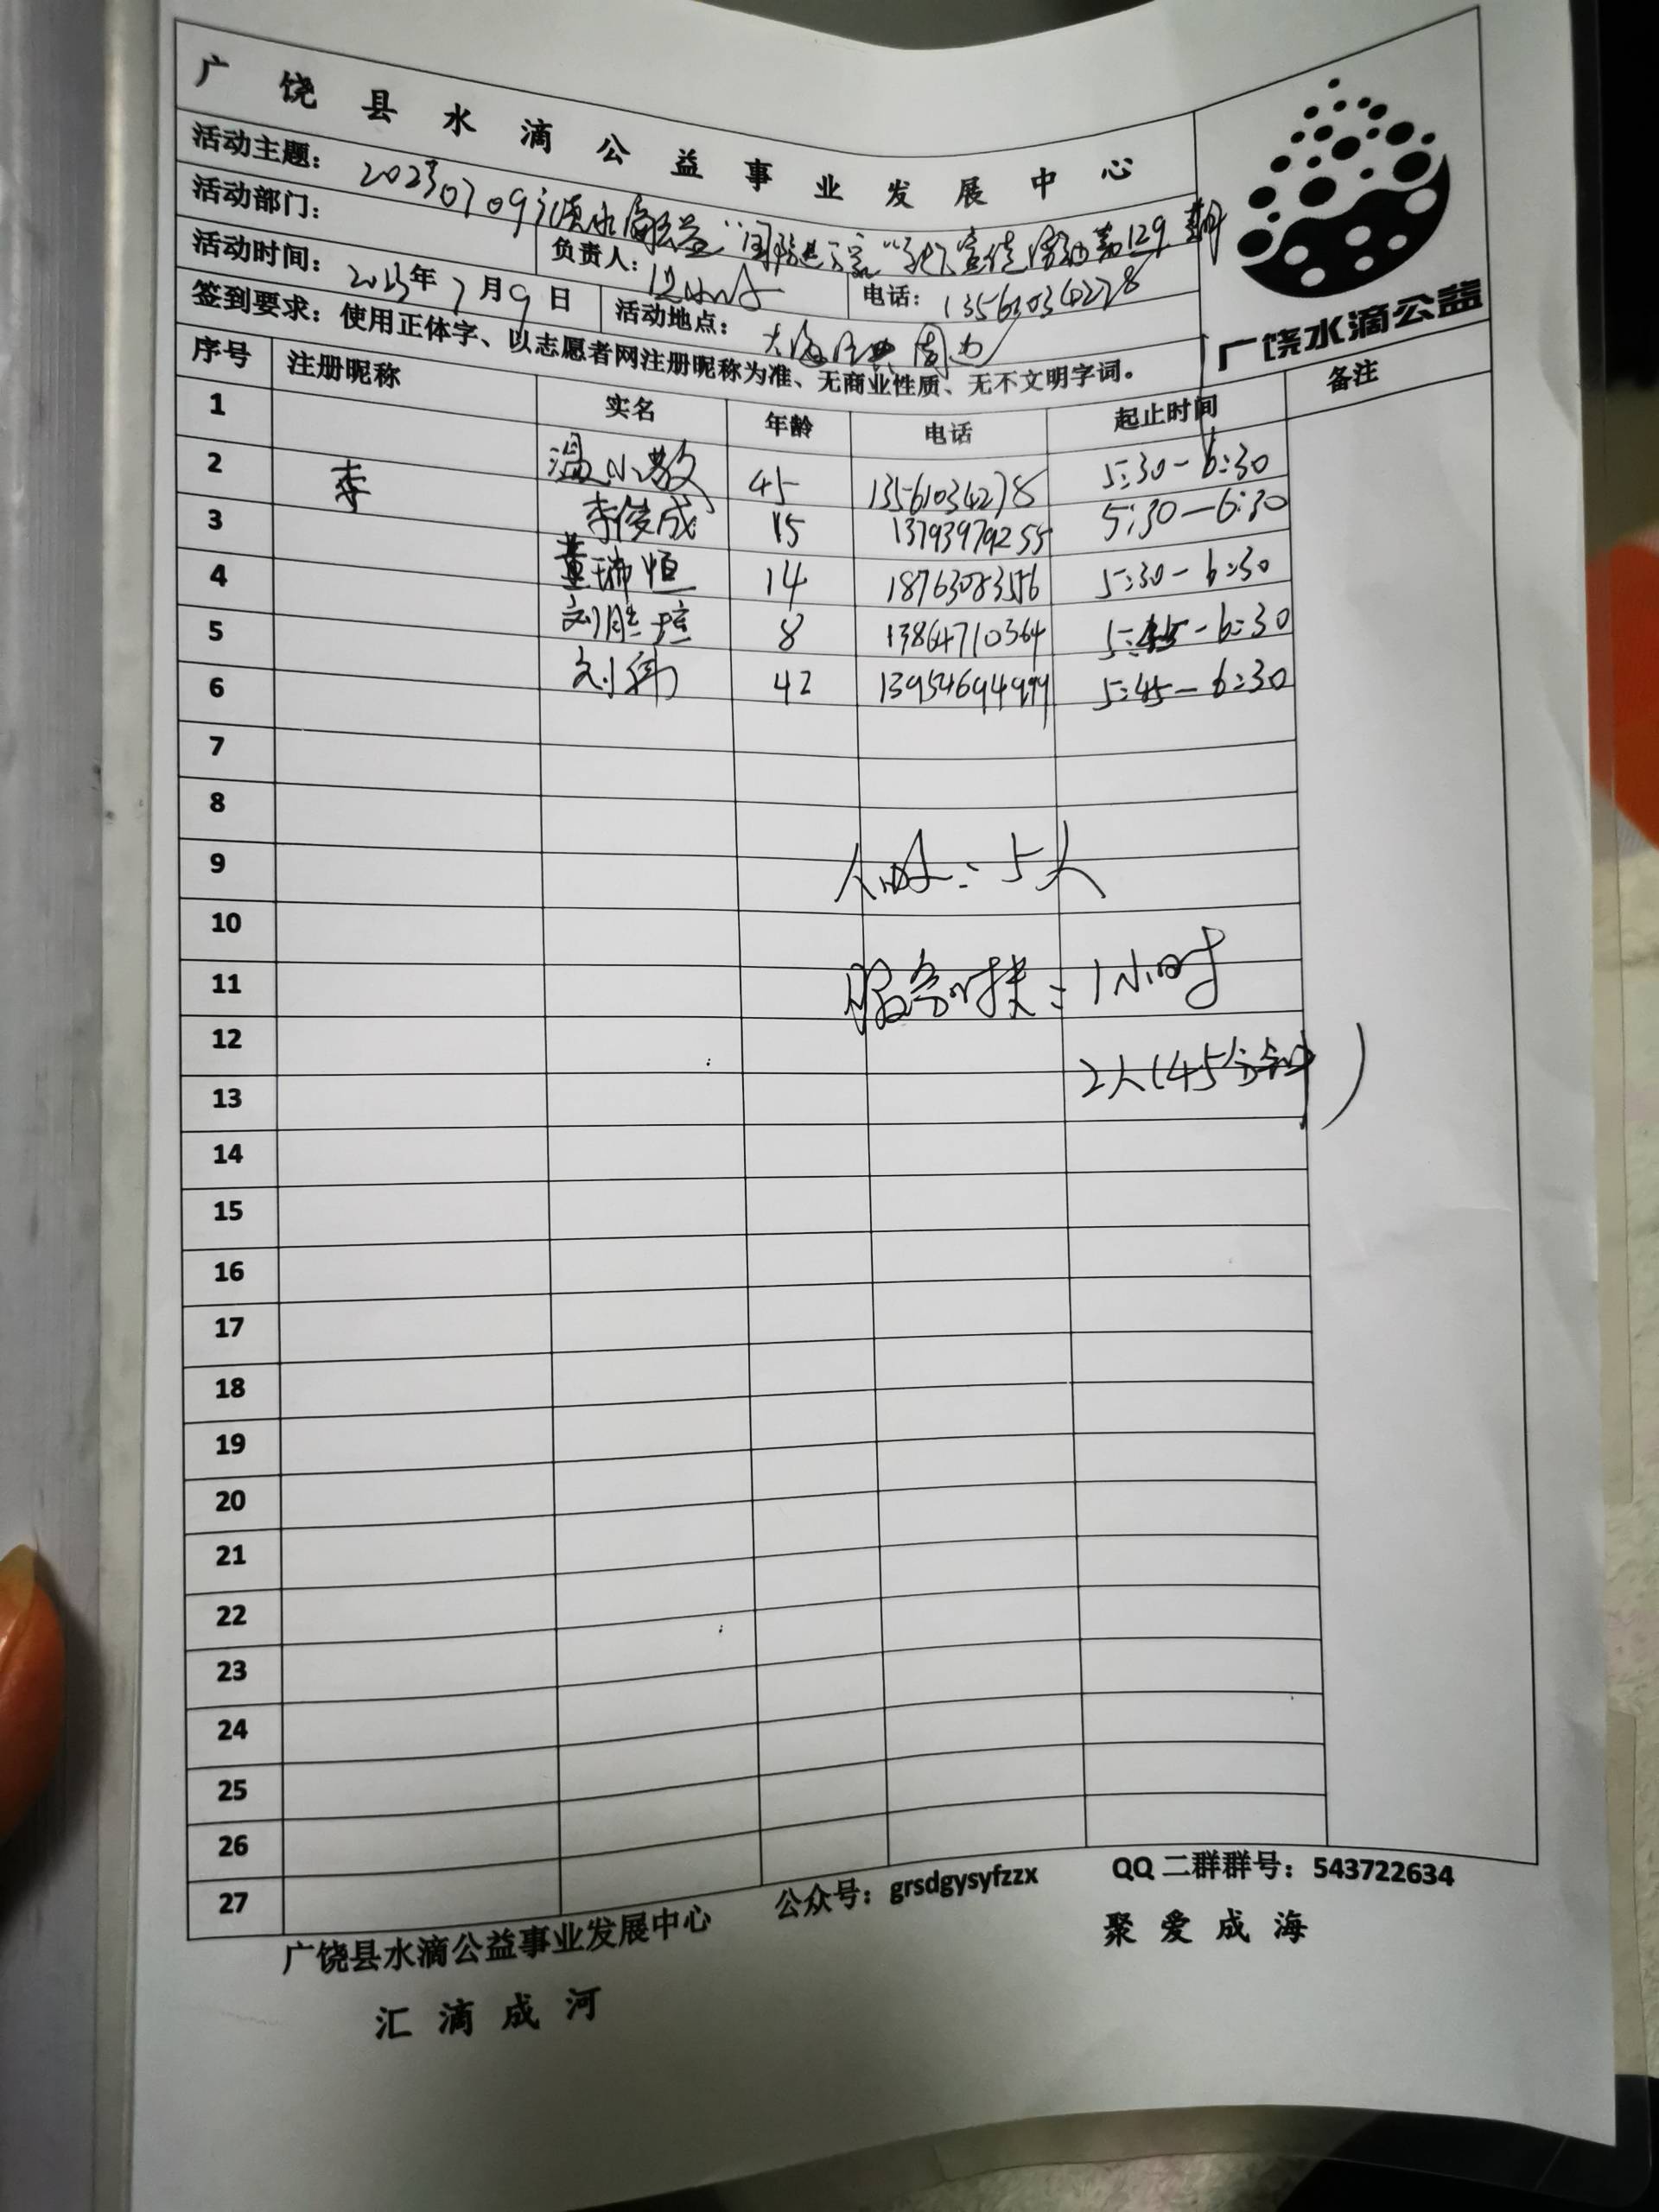 广饶县水滴公益事业发展中心
活动主题：20230709 水滴公益 宣传 第129期
广饶水滴公益
活动部门： 负责人： 电话：13561034278
活动时间：2023年7月9日 活动地点：大海 周边
签到要求：使用正体字、以志愿者网注册昵称为准、无商业性质、无不文明字词。
序号 注册昵称 实名 年龄 电话 起止时间 备注
1 温小教 45 13561034278 5:30-6:30
2 李 李俊成 15 13793979255 5:30-6:30
3 董瑞恒 14 5:30-6:30
4 刘胜 8 13864710364 5:45-6:30
5 刘伟 42 5:45-6:30
6
7
8
9 人数：5人
10
11 服务时长：1小时
12
13 2人(45分钟)
14
15
16
17
18
19
20
21
22
23
24
25
26
27
广饶县水滴公益事业发展中心 公众号：grsdgysyfzzx QQ二群群号：543722634
汇滴成河 聚爱成海